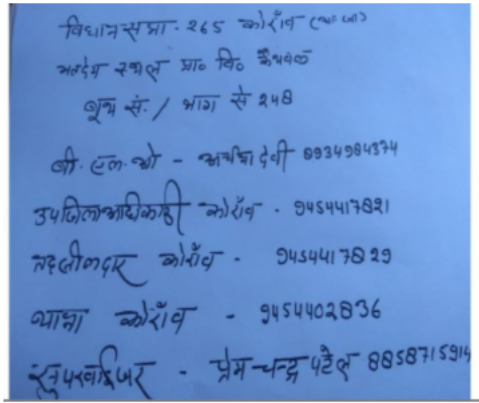 विधानसभा - 265 कोराँव (अ०जा०)
मतदेय स्थल प्रा० वि०
बूथ सं. / भाग सं 248
बी. एल. ओ - देवी 8934984374
उपजिलाधिकारी कोराँव - 9454417821
तहसीलदार कोराँव - 9454417829
थाना कोराँव - 9454402836
सुपरवाईजर - प्रेमचन्द्र पटेल 8858715914